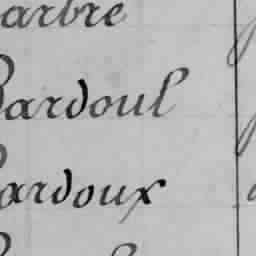 arbre
Bardoul
Bardoux